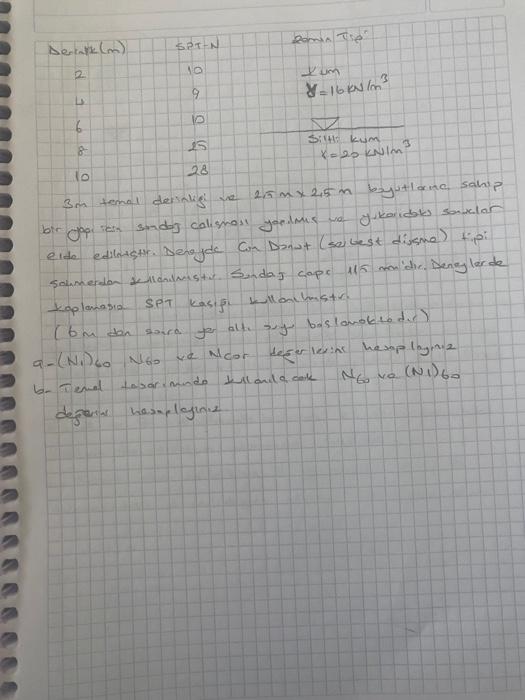 Derinlik (m) SPT-N Zemin Tipi
2 10 Kum
4 9 γ=16 kN/m³
6 10
8 25 Siltli kum γ=20 kN/m³
10 28
3m temel derinliği ve 2,5 m x 2,5 m boyutlarına sahip
bir yapı için sondaj çalışması yapılmış ve yukarıdaki sonuçlar
elde edilmiştir. Deneyde Çin Donut (serbest düşme) tipi
şahmerdan kullanılmıştır. Sondaj çapı 115 mm'dir. Deneylerde
kaplamasız SPT kaşığı kullanılmıştır.
(6m den sonra yer altı suyu başlamaktadır)
a- (N1)60 N60 ve Ncor değerlerini hesaplayınız
b- Temel tasarımında kullanılacak N60 ve (N1)60
değerini hesaplayınız